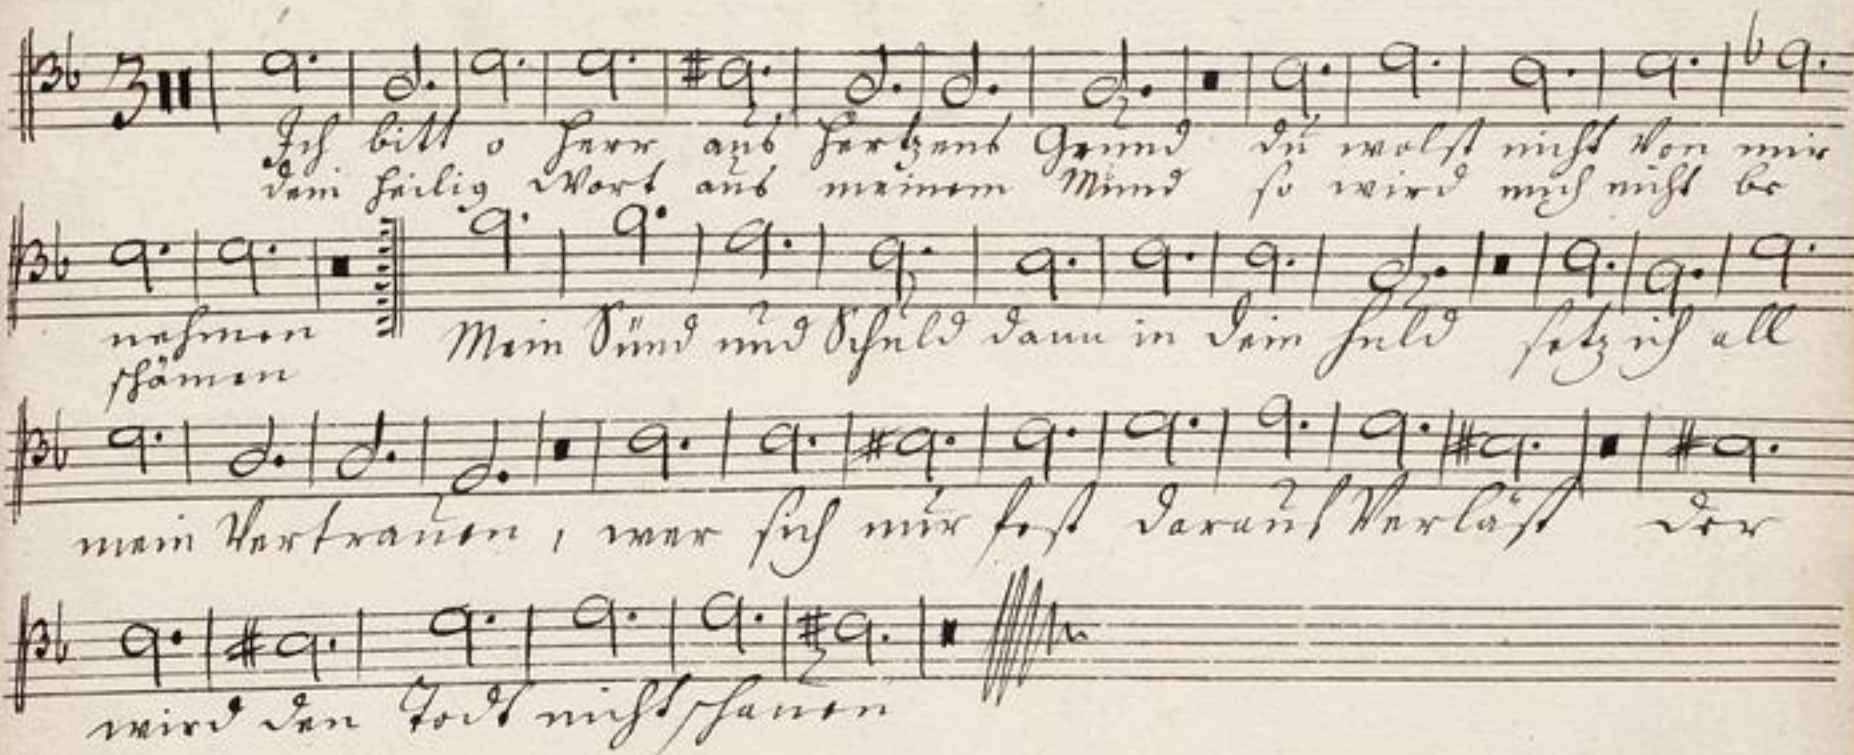 3
Ich bitt o Herr aus Hertzens Grund du wolst nicht Von mir
dein heilig Wort aus meinem Mund so wird mich nicht be
nehmen Mein Sünd und Schuld dann in dein Huld setz ich all
schämen
mein Vertrauen, wer sich nur fest darauf Verläst der
wird den Todt nicht schauen